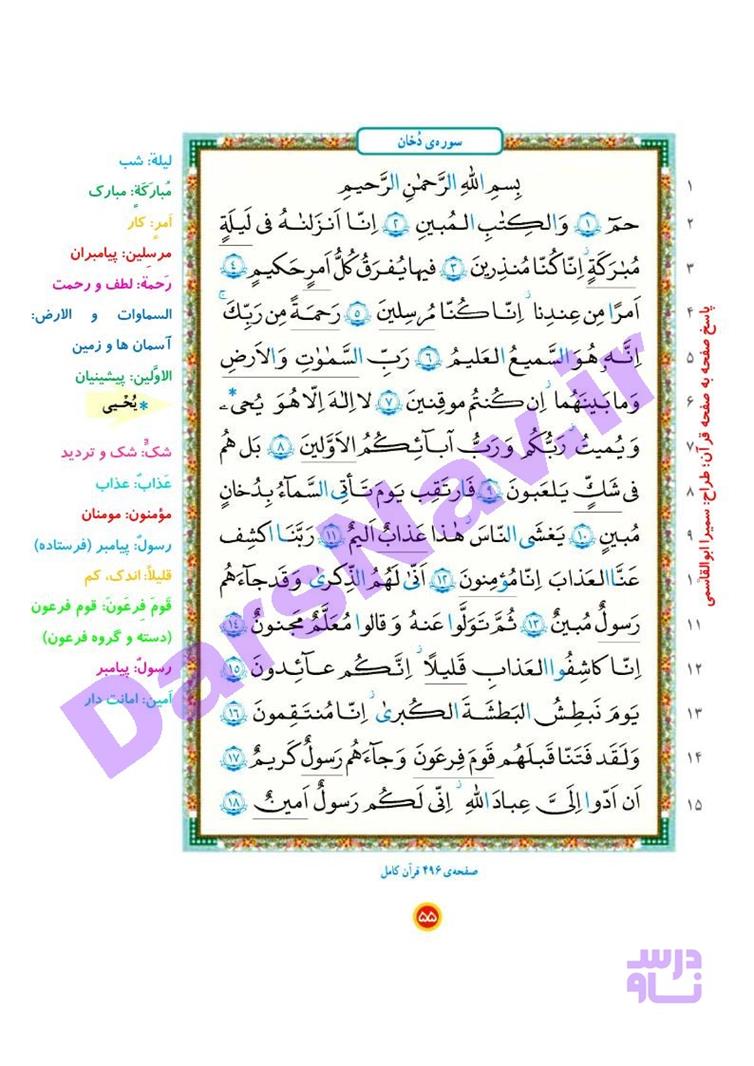 سوره‌ی دُخان
بِسمِ اللهِ الرَّحمٰنِ الرَّحیمِ
حمٓ ﴿۱﴾ وَ الکِتٰبِ المُبینِ ﴿۲﴾ اِنّا اَنزَلنٰهُ فی لَیلَةٍ
مُبٰرَکَةٍ ۚ اِنّا کُنّا مُنذِرینَ ﴿۳﴾ فیها یُفرَقُ کُلُّ اَمرٍ حَکیمٍ ﴿۴﴾
اَمرًا مِن عِندِنا ۚ اِنّا کُنّا مُرسِلینَ ﴿۵﴾ رَحمَةً مِن رَبِّکَ ۚ
اِنَّهٗ هُوَ السَّمیعُ العَلیمُ ﴿۶﴾ رَبِّ السَّمٰوٰتِ وَ الاَرضِ
وَ ما بَینَهُما ۖ اِن کُنتُم موقِنینَ ﴿۷﴾ لا اِلٰهَ اِلّا هُوَ یُحیٖ*
وَ یُمیتُ ۖ رَبُّکُم وَ رَبُّ آبآئِکُمُ الاَوَّلینَ ﴿۸﴾ بَل هُم
فی شَکٍّ یَلعَبونَ ﴿۹﴾ فَارتَقِب یَومَ تَأتِی السَّمآءُ بِدُخانٍ
مُبینٍ ﴿۱۰﴾ یَغشَی النّاسَ ۖ هٰذا عَذابٌ اَلیمٌ ﴿۱۱﴾ رَبَّنَا اکشِف
عَنَّا العَذابَ اِنّا مُؤمِنونَ ﴿۱۲﴾ اَنّیٰ لَهُمُ الذِّکریٰ وَ قَد جآءَهُم
رَسولٌ مُبینٌ ﴿۱۳﴾ ثُمَّ تَوَلَّوا عَنهُ وَ قالوا مُعَلَّمٌ مَجنونٌ ﴿۱۴﴾
اِنّا کاشِفُوا العَذابِ قَلیلًا ۚ اِنَّکُم عآئِدونَ ﴿۱۵﴾
یَومَ نَبطِشُ البَطشَةَ الکُبریٰ ۚ اِنّا مُنتَقِمونَ ﴿۱۶﴾
وَ لَقَد فَتَنّا قَبلَهُم قَومَ فِرعَونَ وَ جآءَهُم رَسولٌ کَریمٌ ﴿۱۷﴾
اَن اَدّوا اِلَیَّ عِبادَ اللهِ ۖ اِنّی لَکُم رَسولٌ اَمینٌ ﴿۱۸﴾
۱
۲
۳
۴
۵
۶
۷
۸
۹
۱۰
۱۱
۱۲
۱۳
۱۴
۱۵
پاسخ صفحه به صفحه قرآن: طراح: سمیرا ابوالقاسمی
لیلة: شب
مُبارَکَةٍ: مبارک
اَمرٍ: کار
مرسلِین: پیامبران
رَحمَة: لطف و رحمت
السماوات و الارض:
آسمان ها و زمین
الاوَّلین: پیشینیان
* یُحْیی
شکٍّ: شک و تردید
عَذابٌ: عذاب
مؤمنون: مومنان
رسولٌ: پیامبر (فرستاده)
قلیلاً: اندک، کم
قَومَ فِرعَونَ: قوم فرعون
(دسته و گروه فرعون)
رسولٌ: پیامبر
اَمین: امانت دار
صفحه‌ی ۴۹۶ قرآن کامل
۵۵
DarsNav.ir
درس
ناو